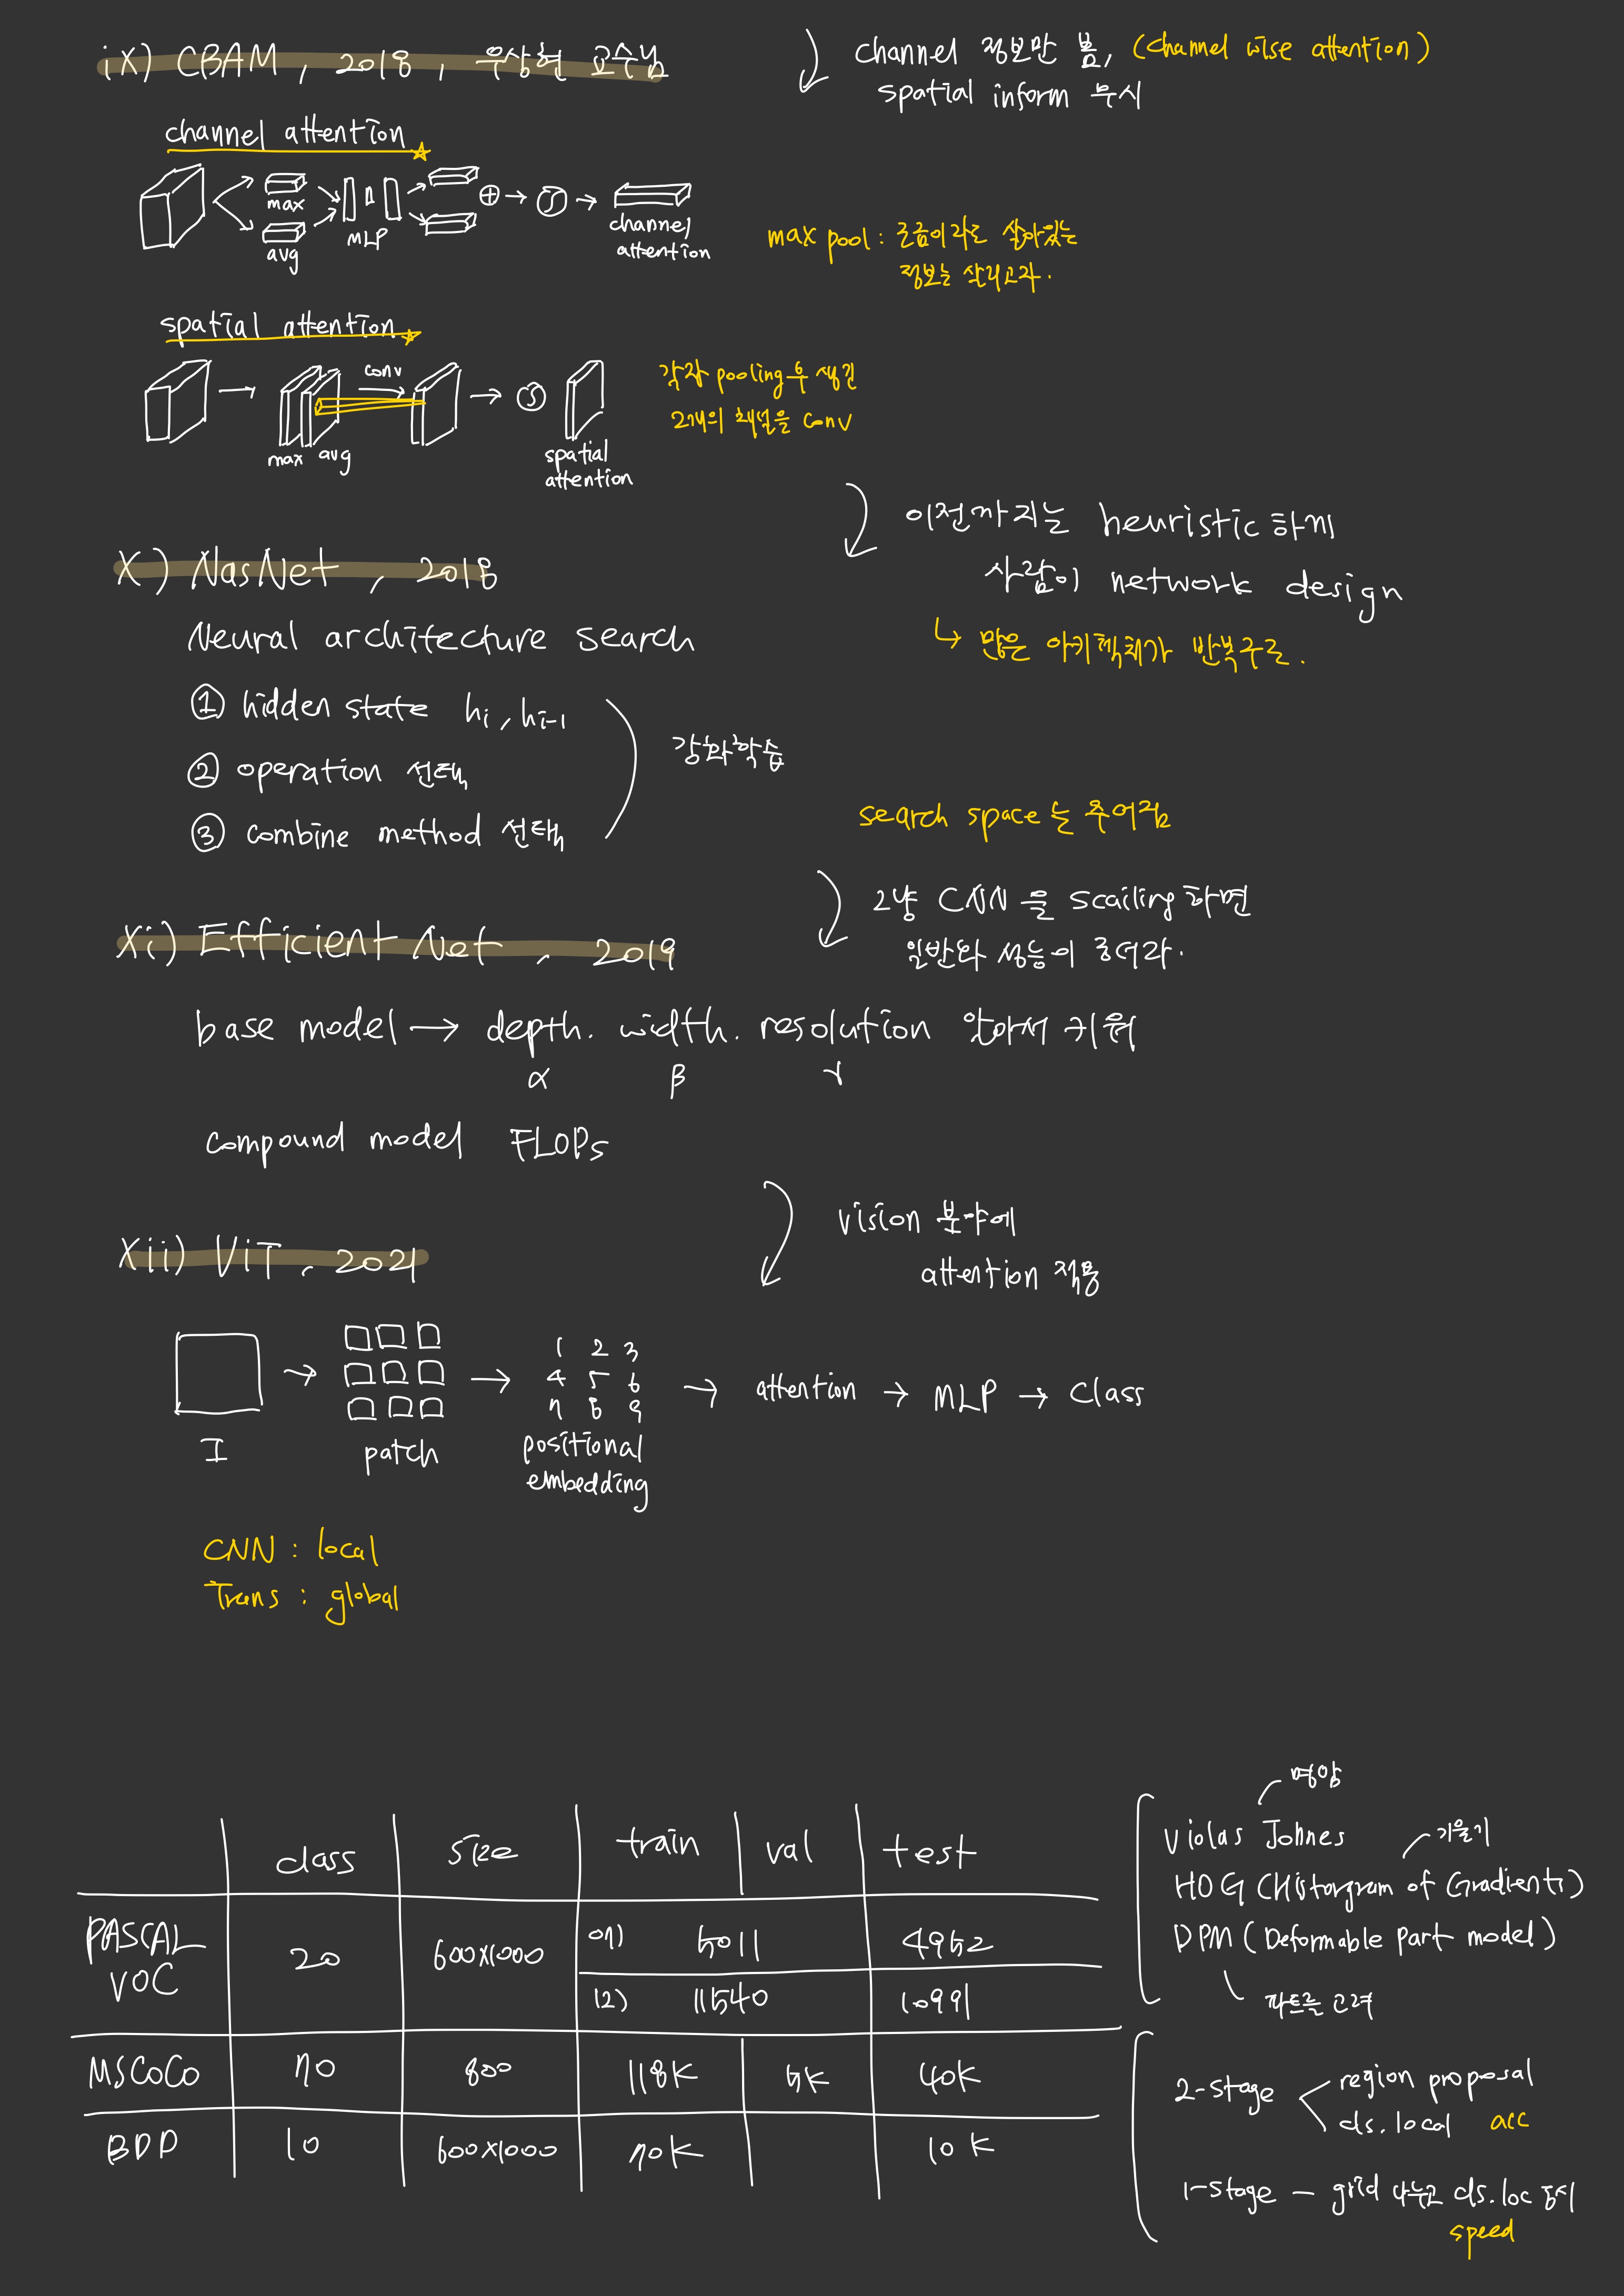 ix) CBAM, 2018, 우상현 교수님
channel 정보만 봄, (channel wise attention)
spatial inform 무시
channel attention
max
avg
MLP
channel attention
max pool : 조금이라도 살아있는
정보는 살리고자.
spatial attention
conv
max avg
spatial attention
각각 pooling후 생긴
2개의 채널을 conv
이전까지는 heuristic하게
사람이 network design
x) NasNet, 2018
Neural architecture search
↳ 많은 아키텍쳐가 반복구조.
① hidden state hi, hi-1
② operation 선택
③ combine method 선택
강화학습
search space는 주어짐
그냥 CNN을 scailing하면
일반화 성능이 줄더라.
xi) Efficient Net, 2019
base model → depth. width. resolution 맞춰서 키워
α β γ
compound model FLOPs
vision 분야에
attention 적용
xii) ViT, 2021
→ → → attention → MLP → class
1 2 3
4 5 6
7 8 9
I
patch
positional embedding
CNN : local
Trans : global
class size train val test
PASCAL VOC 20 600x1000 07) 5011 4952
12) 11540 10991
MSCoCo 70 800 118K 5K 40K
BDD 10 600x1000 70K 10K
명암
Violas Johnes
기울기
HOG (Historgram of Gradients)
DPM (Deformable part model)
파트를 고려
2-stage
region proposal
cls. local acc
1-stage — grid 나누고 cls. loc 동시
speed